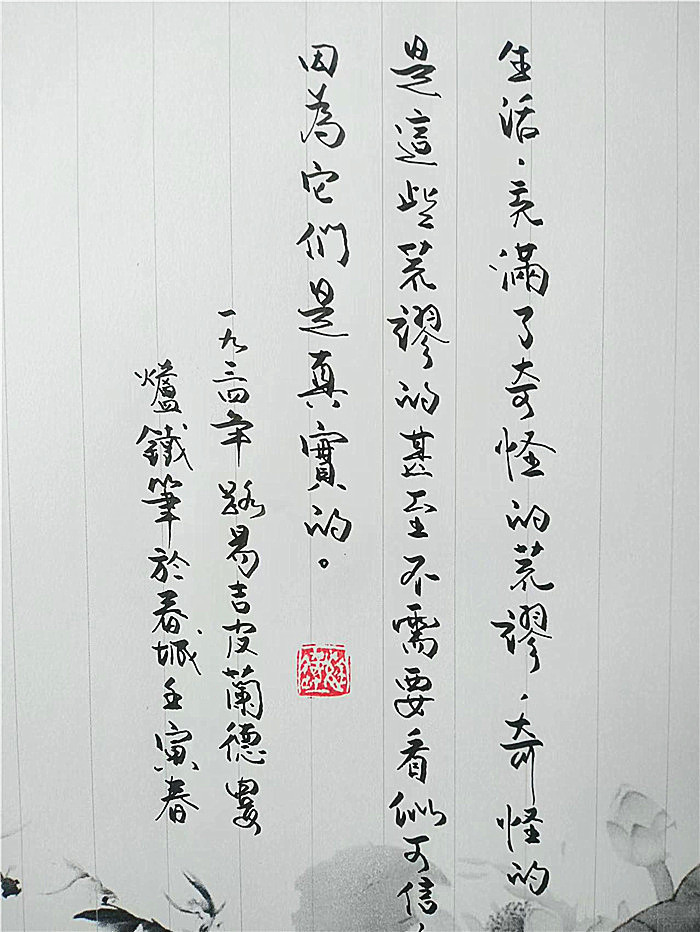 生活，充滿了奇怪的荒謬，奇怪的
是這些荒謬的甚至不需要看似可信，
因為它們是真實的。
一九三四年 路易吉皮蘭德婁
爐鐵筆於春城壬寅春